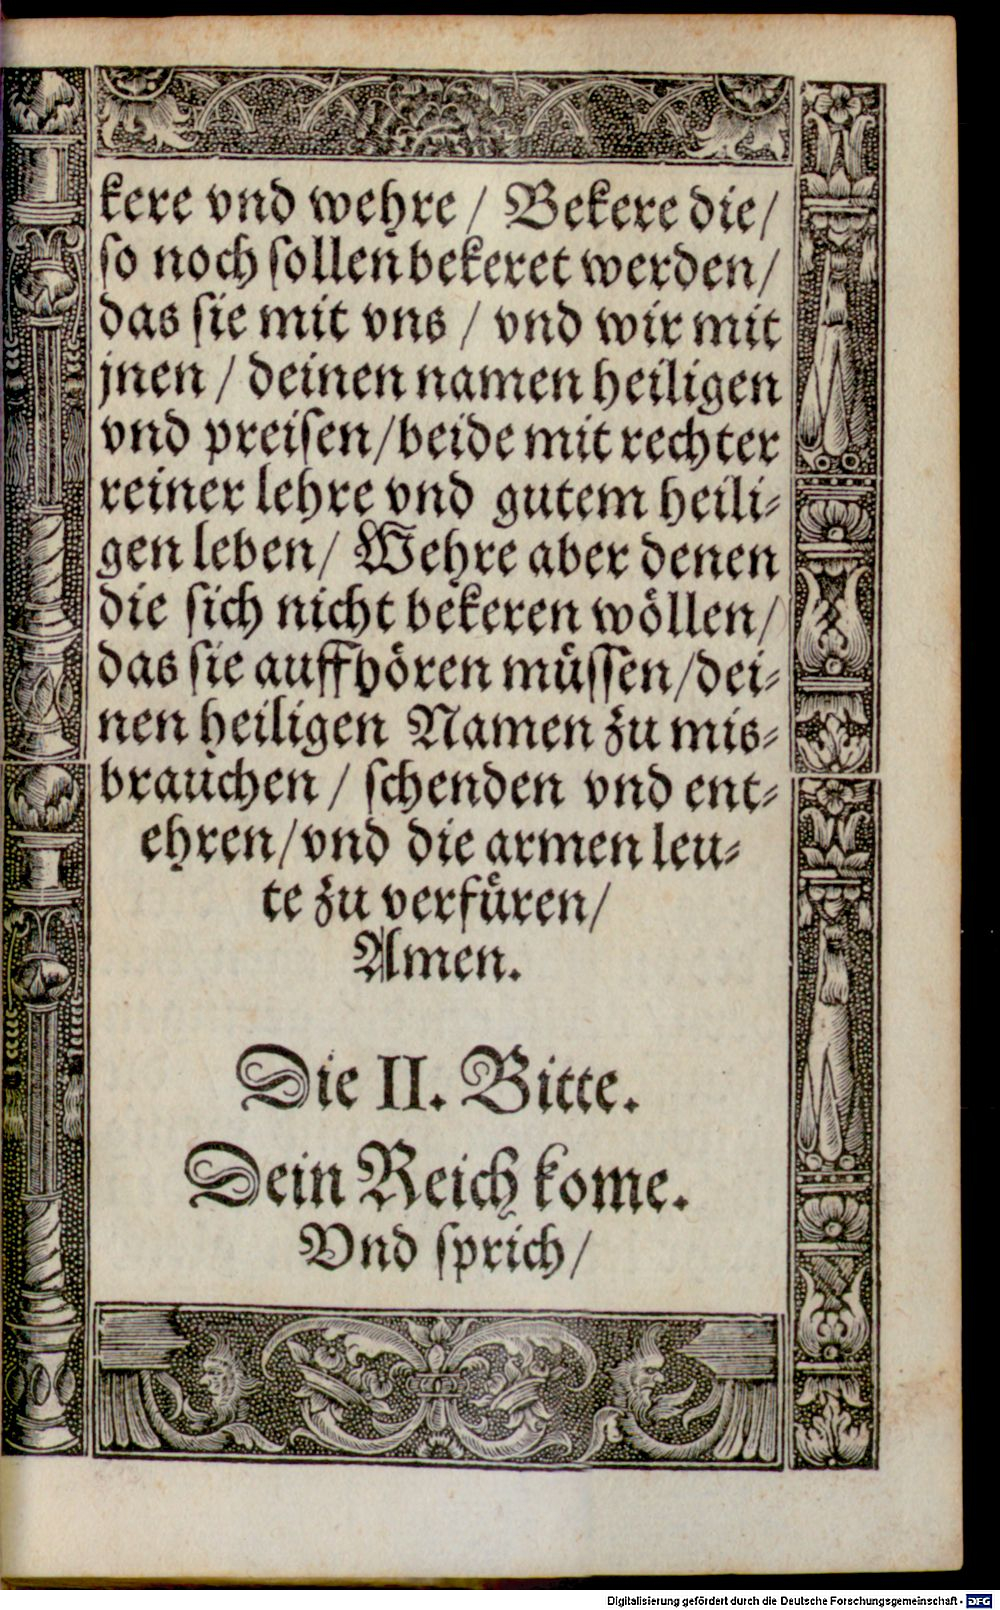 kere vnd wehre / Bekere die /
so noch sollen bekeret werden /
das sie mit vns / vnd wir mit
jnen / deinen namen heiligen
vnd preisen / beide mit rechter
reiner lehre vnd gutem heili⸗
gen leben / Wehre aber denen
die sich nicht bekeren wöllen /
das sie auffhören müssen / dei⸗
nen heiligen Namen zu mis⸗
brauchen / schenden vnd ent⸗
ehren / vnd die armen leu⸗
te zu verfüren /
Amen.
Die II. Bitte.
Dein Reich kome.
Vnd sprich /
Digitalisierung gefördert durch die Deutsche Forschungsgemeinschaft - DFG